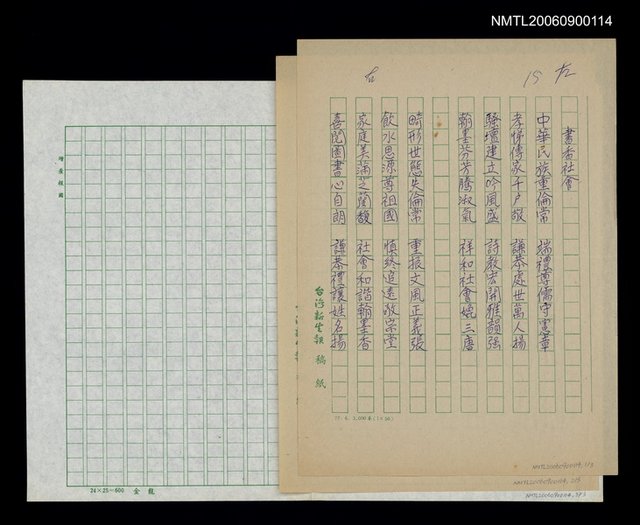 NMTL20060900114
15 左
右
書香社會
中華民族重倫常 瑞禮尊儒守憲章
孝悌傳家千戶敬 謙恭處世萬人揚
騷壇建立吟風盛 詩教宏開雅韻强
翰墨芬芳騰淑氣 祥和社會媲三唐
畸形世態失倫常 重振文風正義張
飲水思源尊祖國 慎終追遠敬宗堂
家庭美滿芝蘭馥 社會和諧翰墨香
喜閱圖書心自朗 謙恭禮讓姓名揚
台灣新生報 稿紙
77. 6. 3,000本(1×50)
增廣報國
24×25=600 金龍
NMTL20060900114, 1/3
NMTL20060900114, 2/3
NMTL20060900114, 3/3